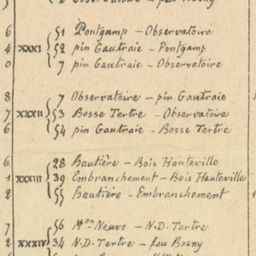 6 51 Pontgamp - Observatoire
4 XXXI 52 pin Gautraie - Pontgamp
0 7 pin Gautraie - Observatoire
8 7 Observatoire - pin Gautraie
7 XXXII 53 Bosse Tertre - Observatoire
6 54 pin Gautraie - Bosse Tertre
6 28 Bautière - Bois Hauteville
1 XXXIII 39 Embranchement - Bois Hauteville
2 55 Bautière - Embranchement
7 56 Mon Neuve - N.D. Tertre
2 XXXIV 34 N.D. Tertre - feu Bréhy